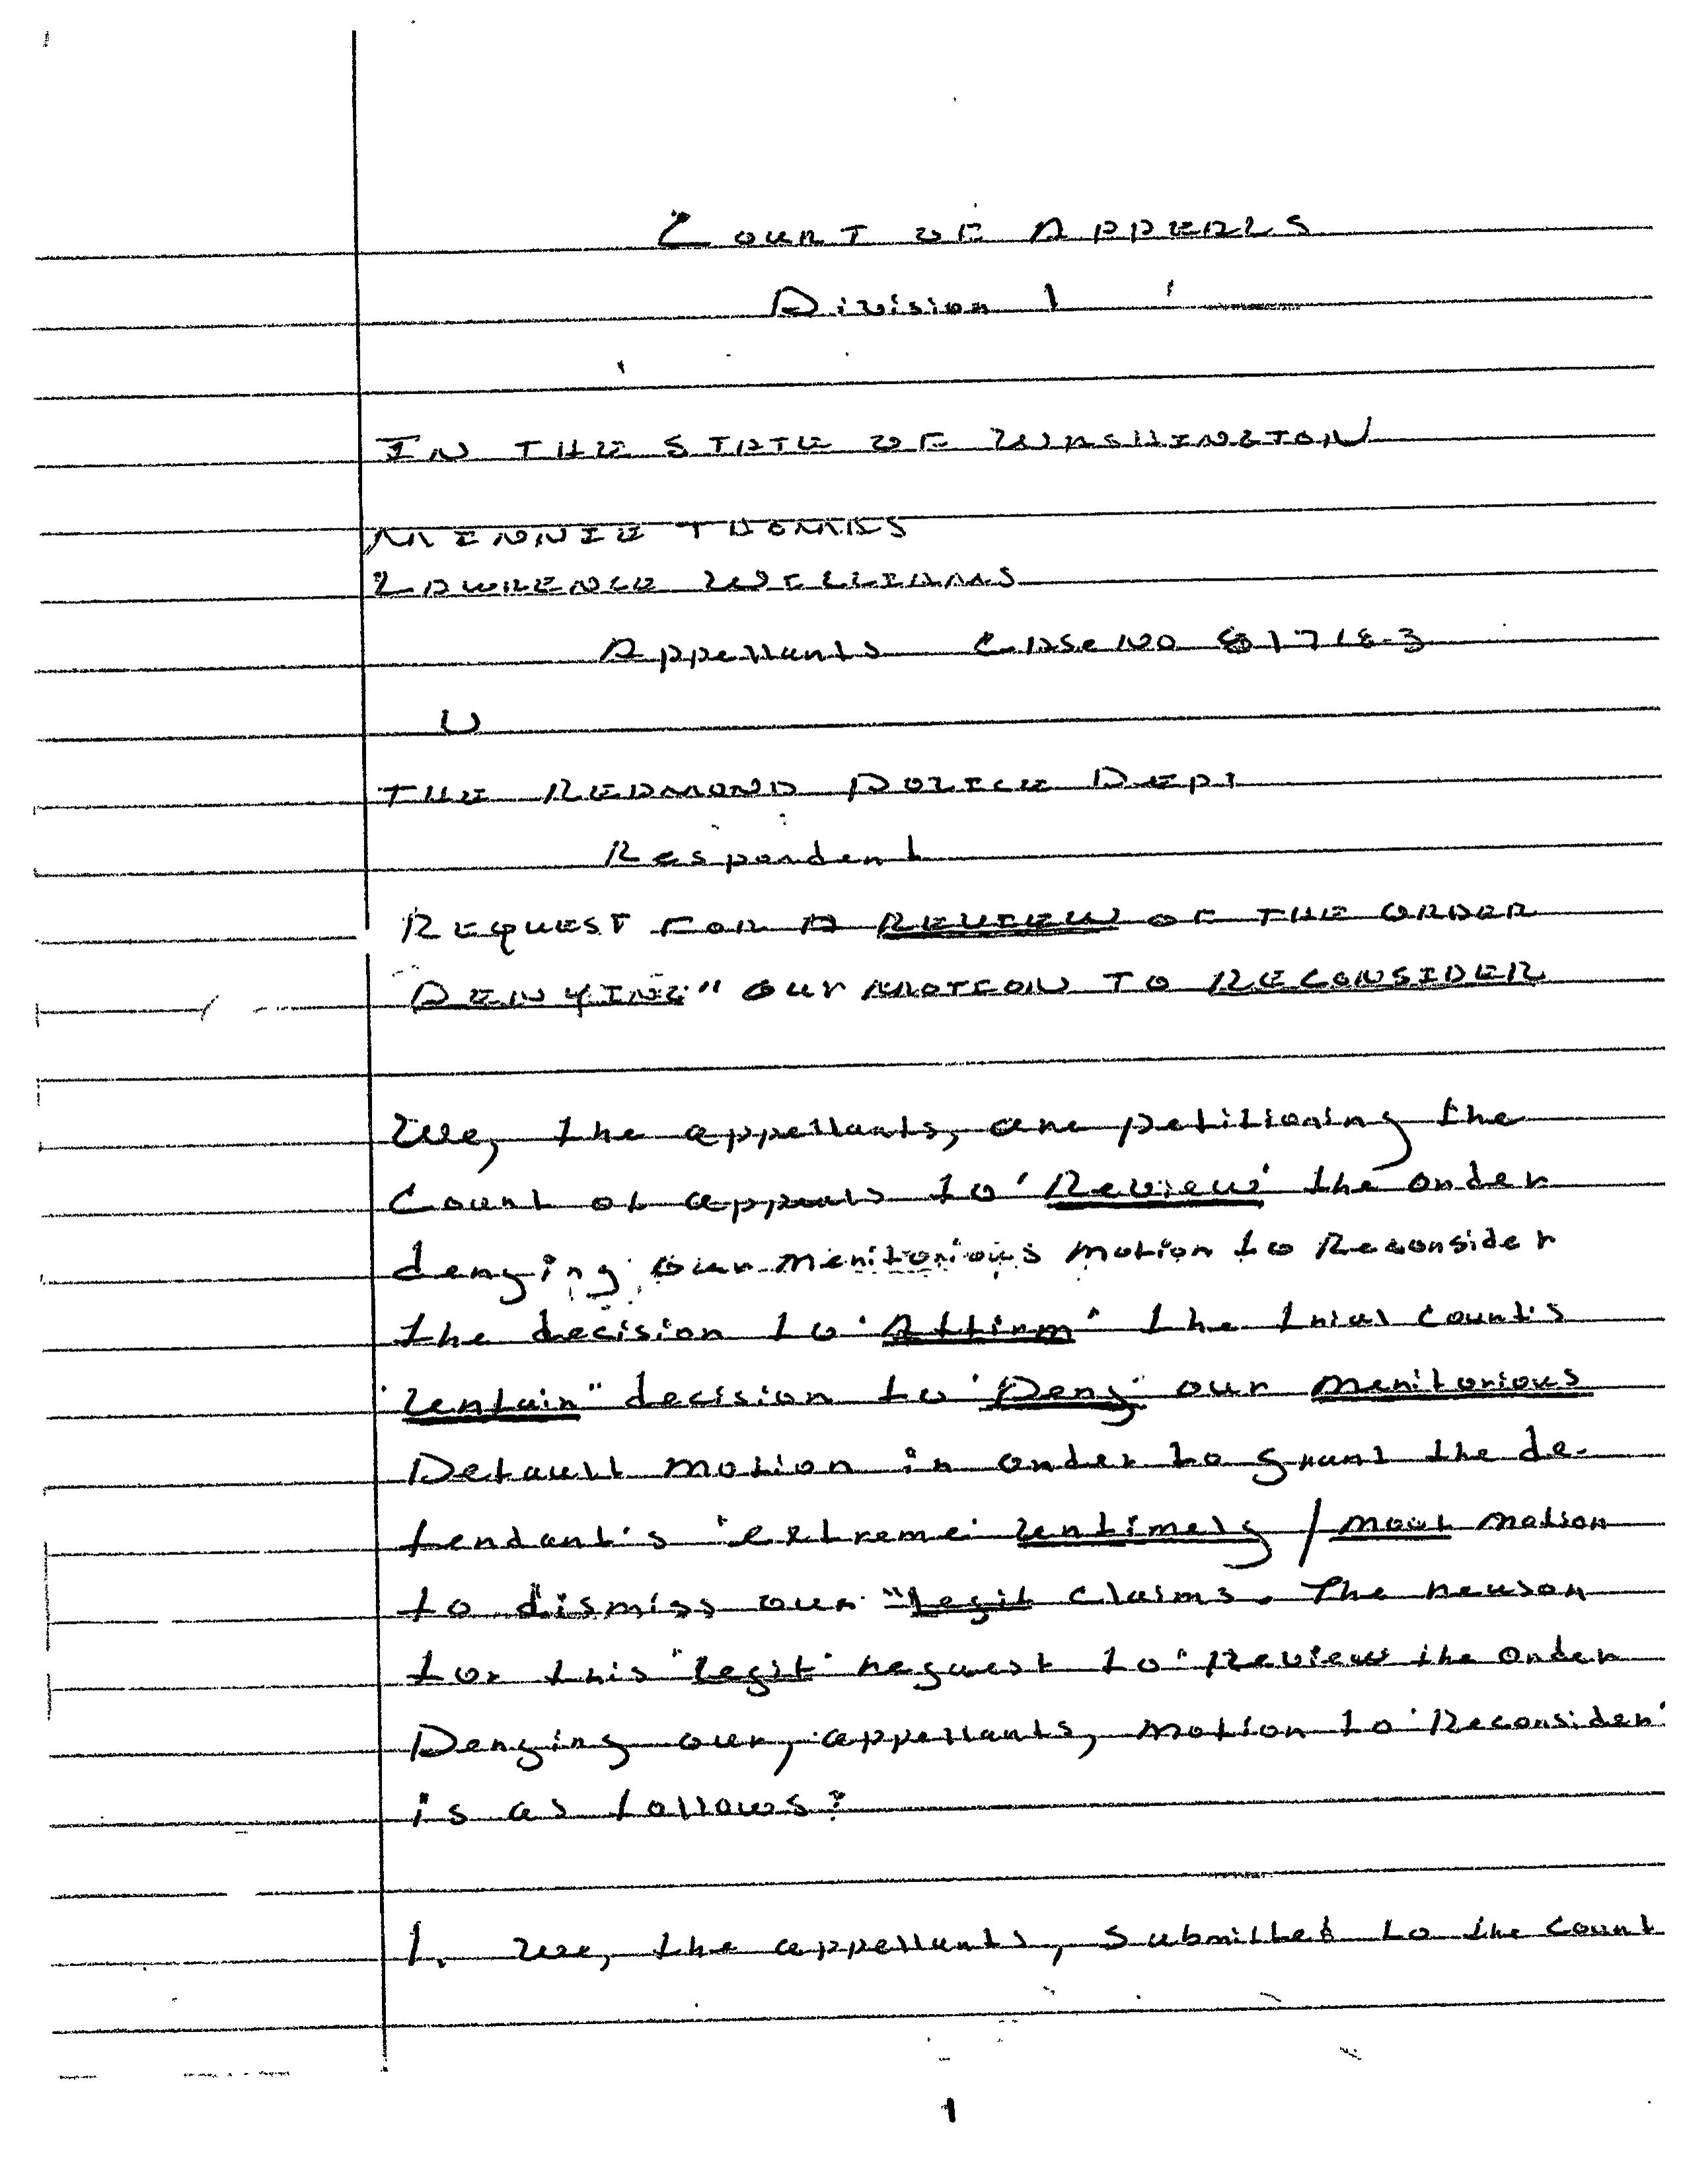 COURT OF APPEALS
Division 1
IN THE STATE OF WASHINGTON
MINNIE THOMAS
LAWRENCE WILLIAMS
Appellants Case NO 81718-3
V
THE REDMOND POLICE DEPT
Respondent
REQUEST FOR A REVIEW OF THE ORDER
DENYING" our MOTION TO RECONSIDER
We, the appellants, are petitioning the
Court of appeals to 'Review' the order
denying our meritorious motion to Reconsider
the decision to 'Affirm' the trial court's
"Unfair" decision to 'Deny' our meritorious
Default motion in order to grant the de-
fendant's 'extreme' untimely / moot motion
to dismiss our "legit claims. The reason
for this "legit" request to 'Review the order
Denying our, appellants, motion to 'Reconsider'
is as follows:
1. We, the appellants, submitted to the court
1